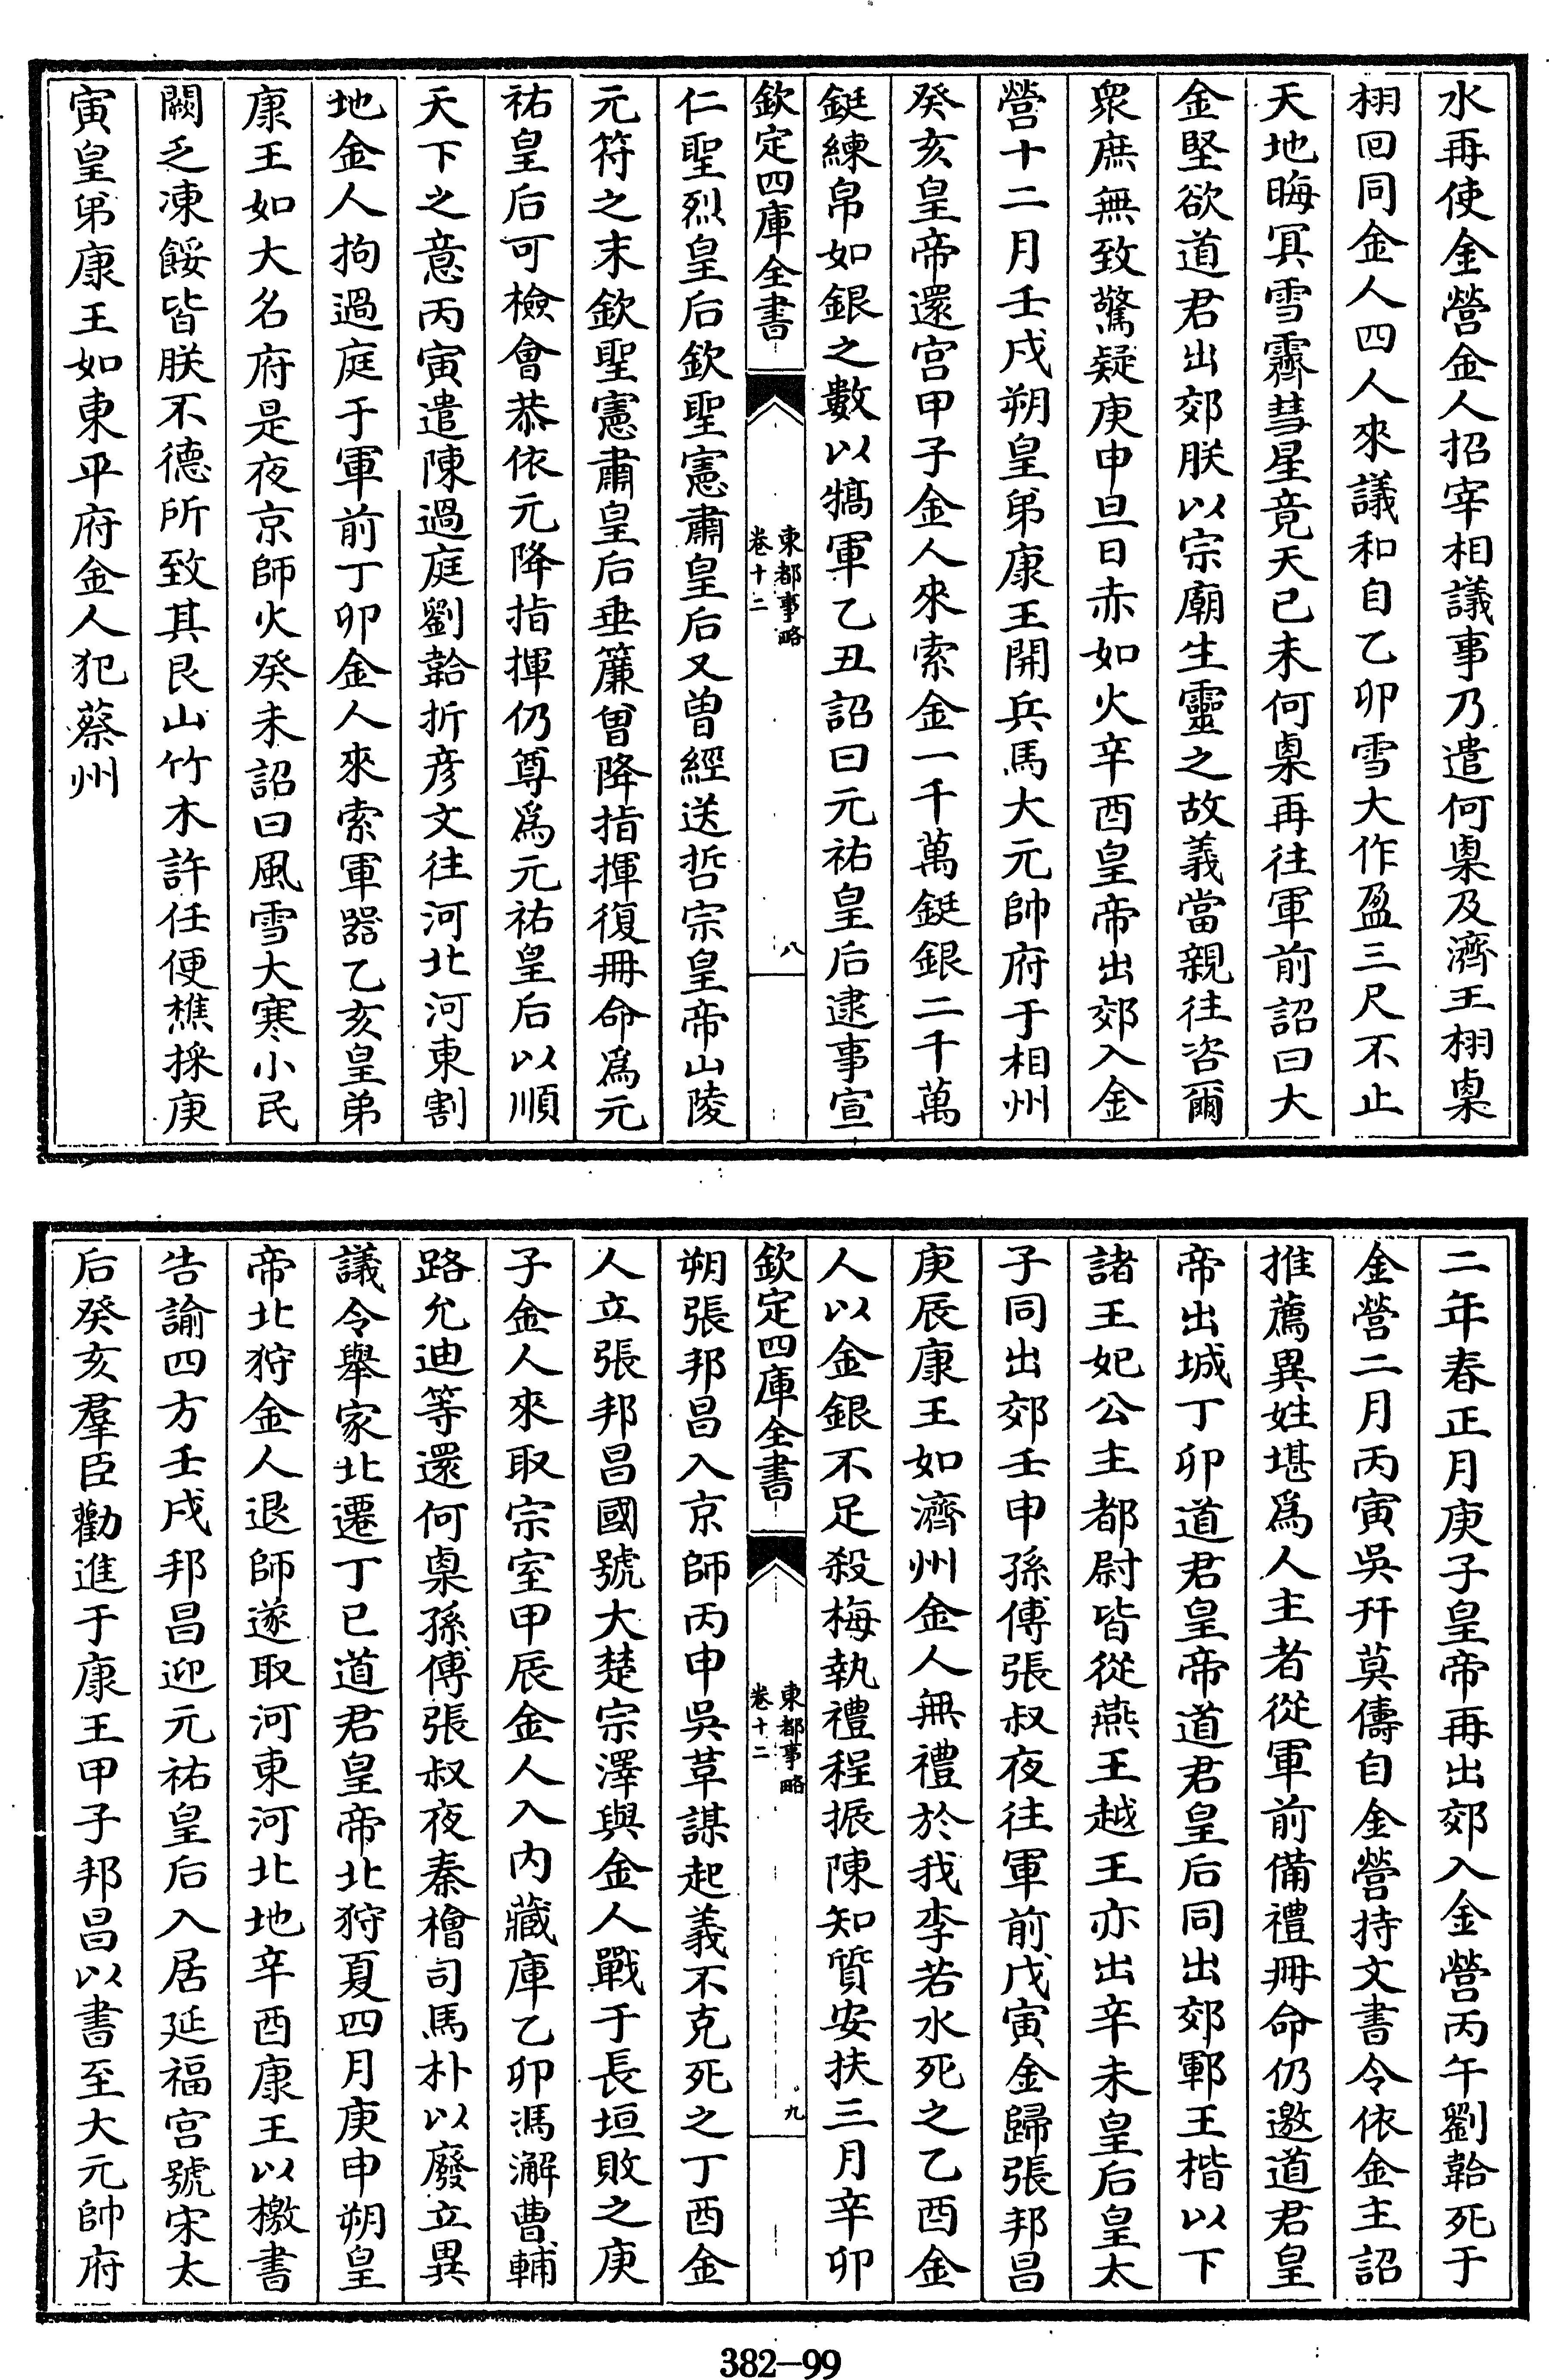 水再使金營金人招宰相議事乃遣何㮚及濟王栩㮚
栩回同金人四人來議和自乙卯雪大作盈三尺不止
天地晦冥雪霽彗星竟天已未何㮚再往軍前詔曰大
金堅欲道君出郊朕以宗廟生靈之故義當親往咨爾
衆庶無致驚疑庚申旦日赤如火辛酉皇帝出郊入金
營十二月壬戌朔皇弟康王開兵馬大元帥府于相州
癸亥皇帝還宮甲子金人來索金一千萬鋌銀二千萬
鋌練帛如銀之數以犒軍乙丑詔曰元祐皇后逮事宣
欽定四庫全書
東都事略
卷十二
八
仁聖烈皇后欽聖憲肅皇后又曽經送哲宗皇帝山陵
元符之末欽聖憲肅皇后垂簾曽降指揮復冊命為元
祐皇后可檢會恭依元降指揮仍尊為元祐皇后以順
天下之意丙寅遣陳過庭劉韐折彦文往河北河東割
地金人拘過庭于軍前丁卯金人來索軍器乙亥皇弟
康王如大名府是夜京師火癸未詔曰風雪大寒小民
闕乏凍餒皆朕不德所致其艮山竹木許任便樵採庚
寅皇弟康王如東平府金人犯蔡州
二年春正月庚子皇帝再出郊入金營丙午劉韐死于
金營二月丙寅吳幵莫儔自金營持文書令依金主詔
推薦異姓堪為人主者從軍前備禮冊命仍邀道君皇
帝出城丁卯道君皇帝道君皇后同出郊鄆王楷以下
諸王妃公主都尉皆從燕王越王亦出辛未皇后皇太
子同出郊壬申孫傅張叔夜往軍前戊寅金歸張邦昌
庚辰康王如濟州金人無禮於我李若水死之乙酉金
人以金銀不足殺梅執禮程振陳知質安扶三月辛卯
欽定四庫全書
東都事略
卷十二
九
朔張邦昌入京師丙申吳革謀起義不克死之丁酉金
人立張邦昌國號大楚宗澤與金人戰于長垣敗之庚
子金人來取宗室甲辰金人入内藏庫乙卯馮澥曹輔
路允迪等還何㮚孫傅張叔夜秦檜司馬朴以廢立異
議令舉家北遷丁巳道君皇帝北狩夏四月庚申朔皇
帝北狩金人退師遂取河東河北地辛酉康王以檄書
告諭四方壬戌邦昌迎元祐皇后入居延福宮號宋太
后癸亥羣臣勸進于康王甲子邦昌以書至大元帥府
382—99